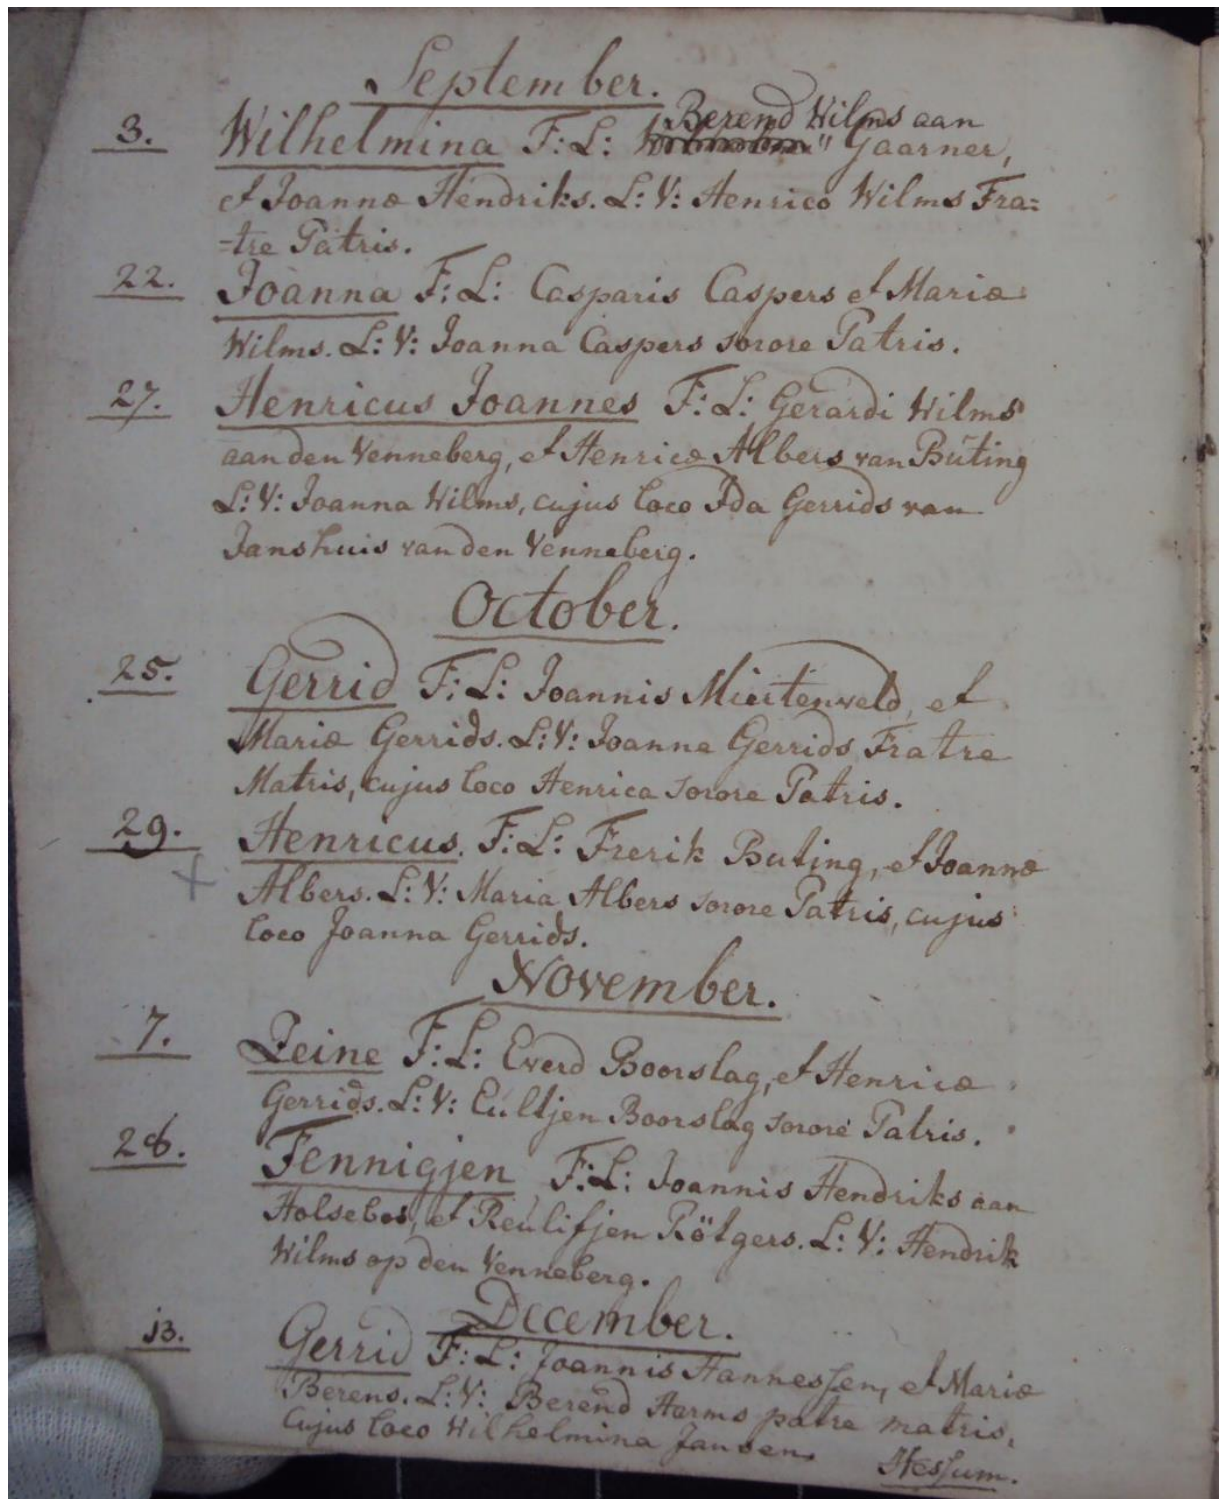 September.
Berend Wilms aan
3. Wilhelmina F: L: " Gaarner,
et Joannæ Hendriks. L: V: Henrico Wilms Fra=
=tre Patris.
22. Joanna F: L: Casparis Caspers et Mariæ
Wilms. L: V: Joanna Caspers sorore Patris.
27. Henricus Joannes F: L: Gerardi Wilms
aan den Venneberg, et Henricæ Albers van Büting
L: V: Joanna Wilms, cujus loco Ida Gerrids van
Janshuis van den Venneberg.
October.
25. Gerrid F: L: Joannis Miditenveld, et
Mariæ Gerrids. L: V: Joanne Gerrids Fratre
Matris, cujus loco Henrica sorore Patris.
29. Henricus. F: L: Frerik Buting, et Joannæ
Albers. L: V: Maria Albers sorore Patris, cujus
loco Joanna Gerrids.
November.
7. Zeine F: L: Everd Boorslag, et Henricæ
Gerrids. L: V: Eultjen Boorslag sorore Patris.
28. Fennigjen F: L: Joannis Hendriks aan
Holsebos, et Reulifjen Rötgers. L: V: Hendrik
Wilms op den Venneberg.
December.
13. Gerrid F: L: Joannis Hannessen, et Mariæ
Berens. L: V: Berend Harms patre matris,
cujus loco Wilhelmina Jansen.
Hessum.